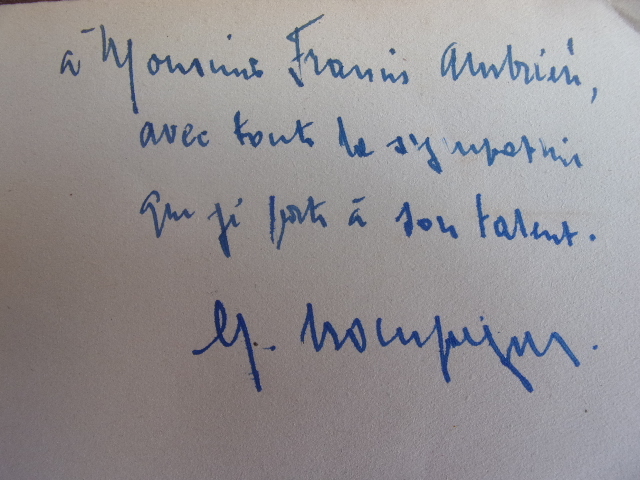 à Monsieur Francis Ambrière,
avec toute la sympathie
que je porte à son talent.
G.